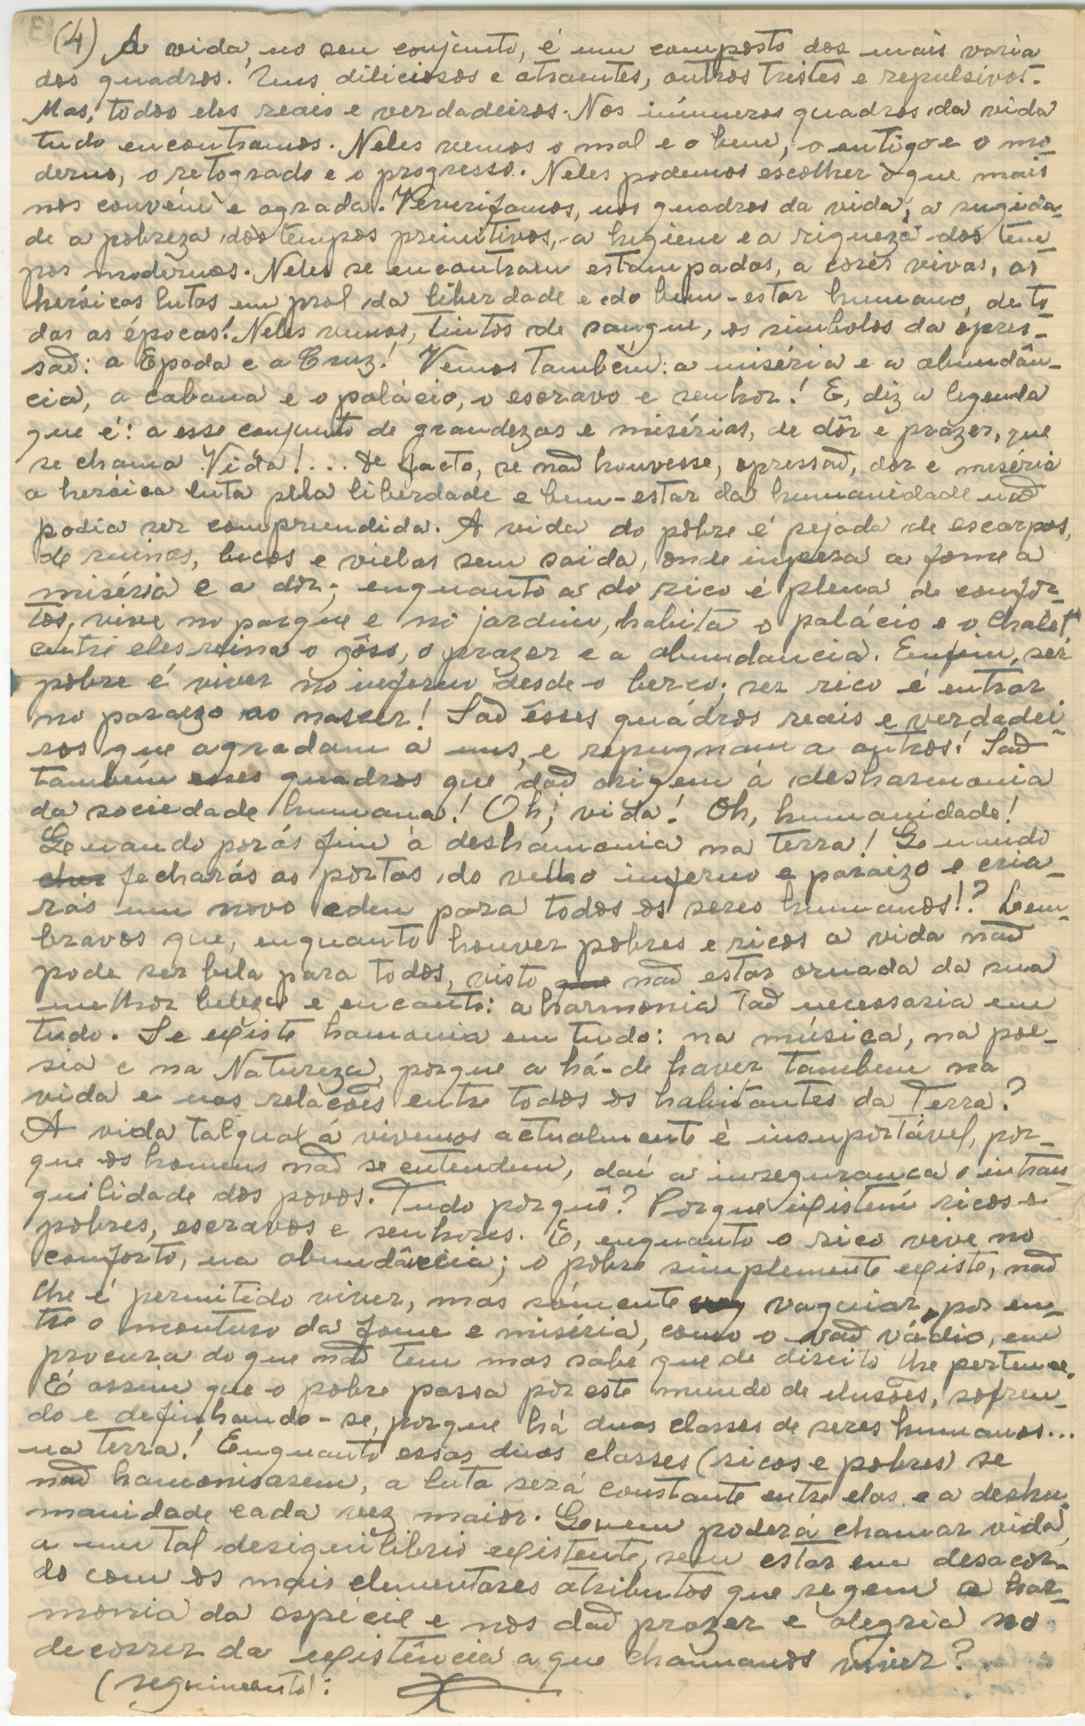 (4) A vida, no seu conjunto, é um composto dos mais varia
dos quadros. Uns diliciosos e atraentes, outros tristes e repulsivos.
Mas, todos eles reais e verdadeiros. Nos inúmeros quadros da vida
tudo encontramos. Neles vemos o mal e o bem, o antigo e o mo-
derno, o retogrado e o progresso. Neles podemos escolher o que mais
nos convém e agrada. Verurifamos, nos quadros da vida, a rugida-
de a pobreza dos tempos primitivos, a higiene e a riqueza dos tem-
pos modernos. Neles se encontram estampadas, a cores vivas, as
heróicas lutas em prol da liberdade e do bem-estar humano, de to
das as épocas! Neles vemos, tintos de sangue, os simbolos da ópres-
saõ: a Espada e a Cruz! Vemos também: a miséria e a abundân-
cia, a cabana e o palácio, o escravo e senhor! E, diz a legenda
que é: a esse conjunto de grandezas e misérias, de dôr e prazer, que
se chama Vida!... De facto, se naõ houvesse, opressaõ, dor e miséria
a heróica luta pela liberdade e bem-estar da humanidade naõ
podia ser compreendida. A vida do pobre é pejada de escarpos,
de ruinas, becos e vielas sem saida, onde impera a fome a
miséria e a dor; enquanto a do rico é plena de confor-
tos, vive no parque e no jardim, habita o palácio e o Chalet
entre eles reina o gôso, o prazer e a abundancia. Enfim, ser
pobre é viver no inferno desde o berço; ser rico é entrar
no paraizo ao nascer! Saõ êsses quádros reais e verdadei-
ros que agradam a uns, e repugnam a outros! Saõ
também esses quadros que daõ origem á desharmonia
da sociedade humana! Oh, vida! Oh, humanidade!
Quando porás fim á deshamonia na terra! Quando
fecharás as portas do velho inferno e paraizo e cria-
rás um novo eden para todos os seres humanos!? Lem-
bravos que, enquanto houver pobres e ricos a vida naõ
pode ser bela para todos, visto naõ estar ornada da sua
melhor beleza e encanto: a harmonia taõ necessaria em
tudo. Se existe hamonia em tudo: na música, na poe-
sia e na Natureza, porque a há-de haver tambem na
vida e nas relações entre todos os habitantes da Terra?
A vida tal qual á vivemos actualmente é insuportável, por-
que os homens naõ se entendem, daí a insegurança e intran-
quilidade dos povos. Tudo porquê? Porque existem ricos e
pobres, escravos e senhores. E, enquanto o rico vive no
conforto, na abundância; o pobre simplemente existe, naõ
lhe é permitido viver, mas sómente vaguiar, por en-
tre o monturo da fome e miséria, como o vádio, em
procura do que naõ tem mas sabe que de direito lhe pertence.
É assim que o pobre passa por este mundo de ilusões, sofren-
do e definhando-se, porque há duas classes de seres humanos...
na terra! Enquanto essas duas classes (ricos e pobres) se
naõ hamonisarem, a luta será constante entre elas e a deshu-
manidade cada vez maior. Quem poderá chamar vida,
a um tal desiquilibrio existente, sem estar em desacor-
do com os mais elementares atributos que regem a har-
monia da espécie e nos daõ prazer e alegria no
decorrer da existência a que chamamos viver?
(seguimento):